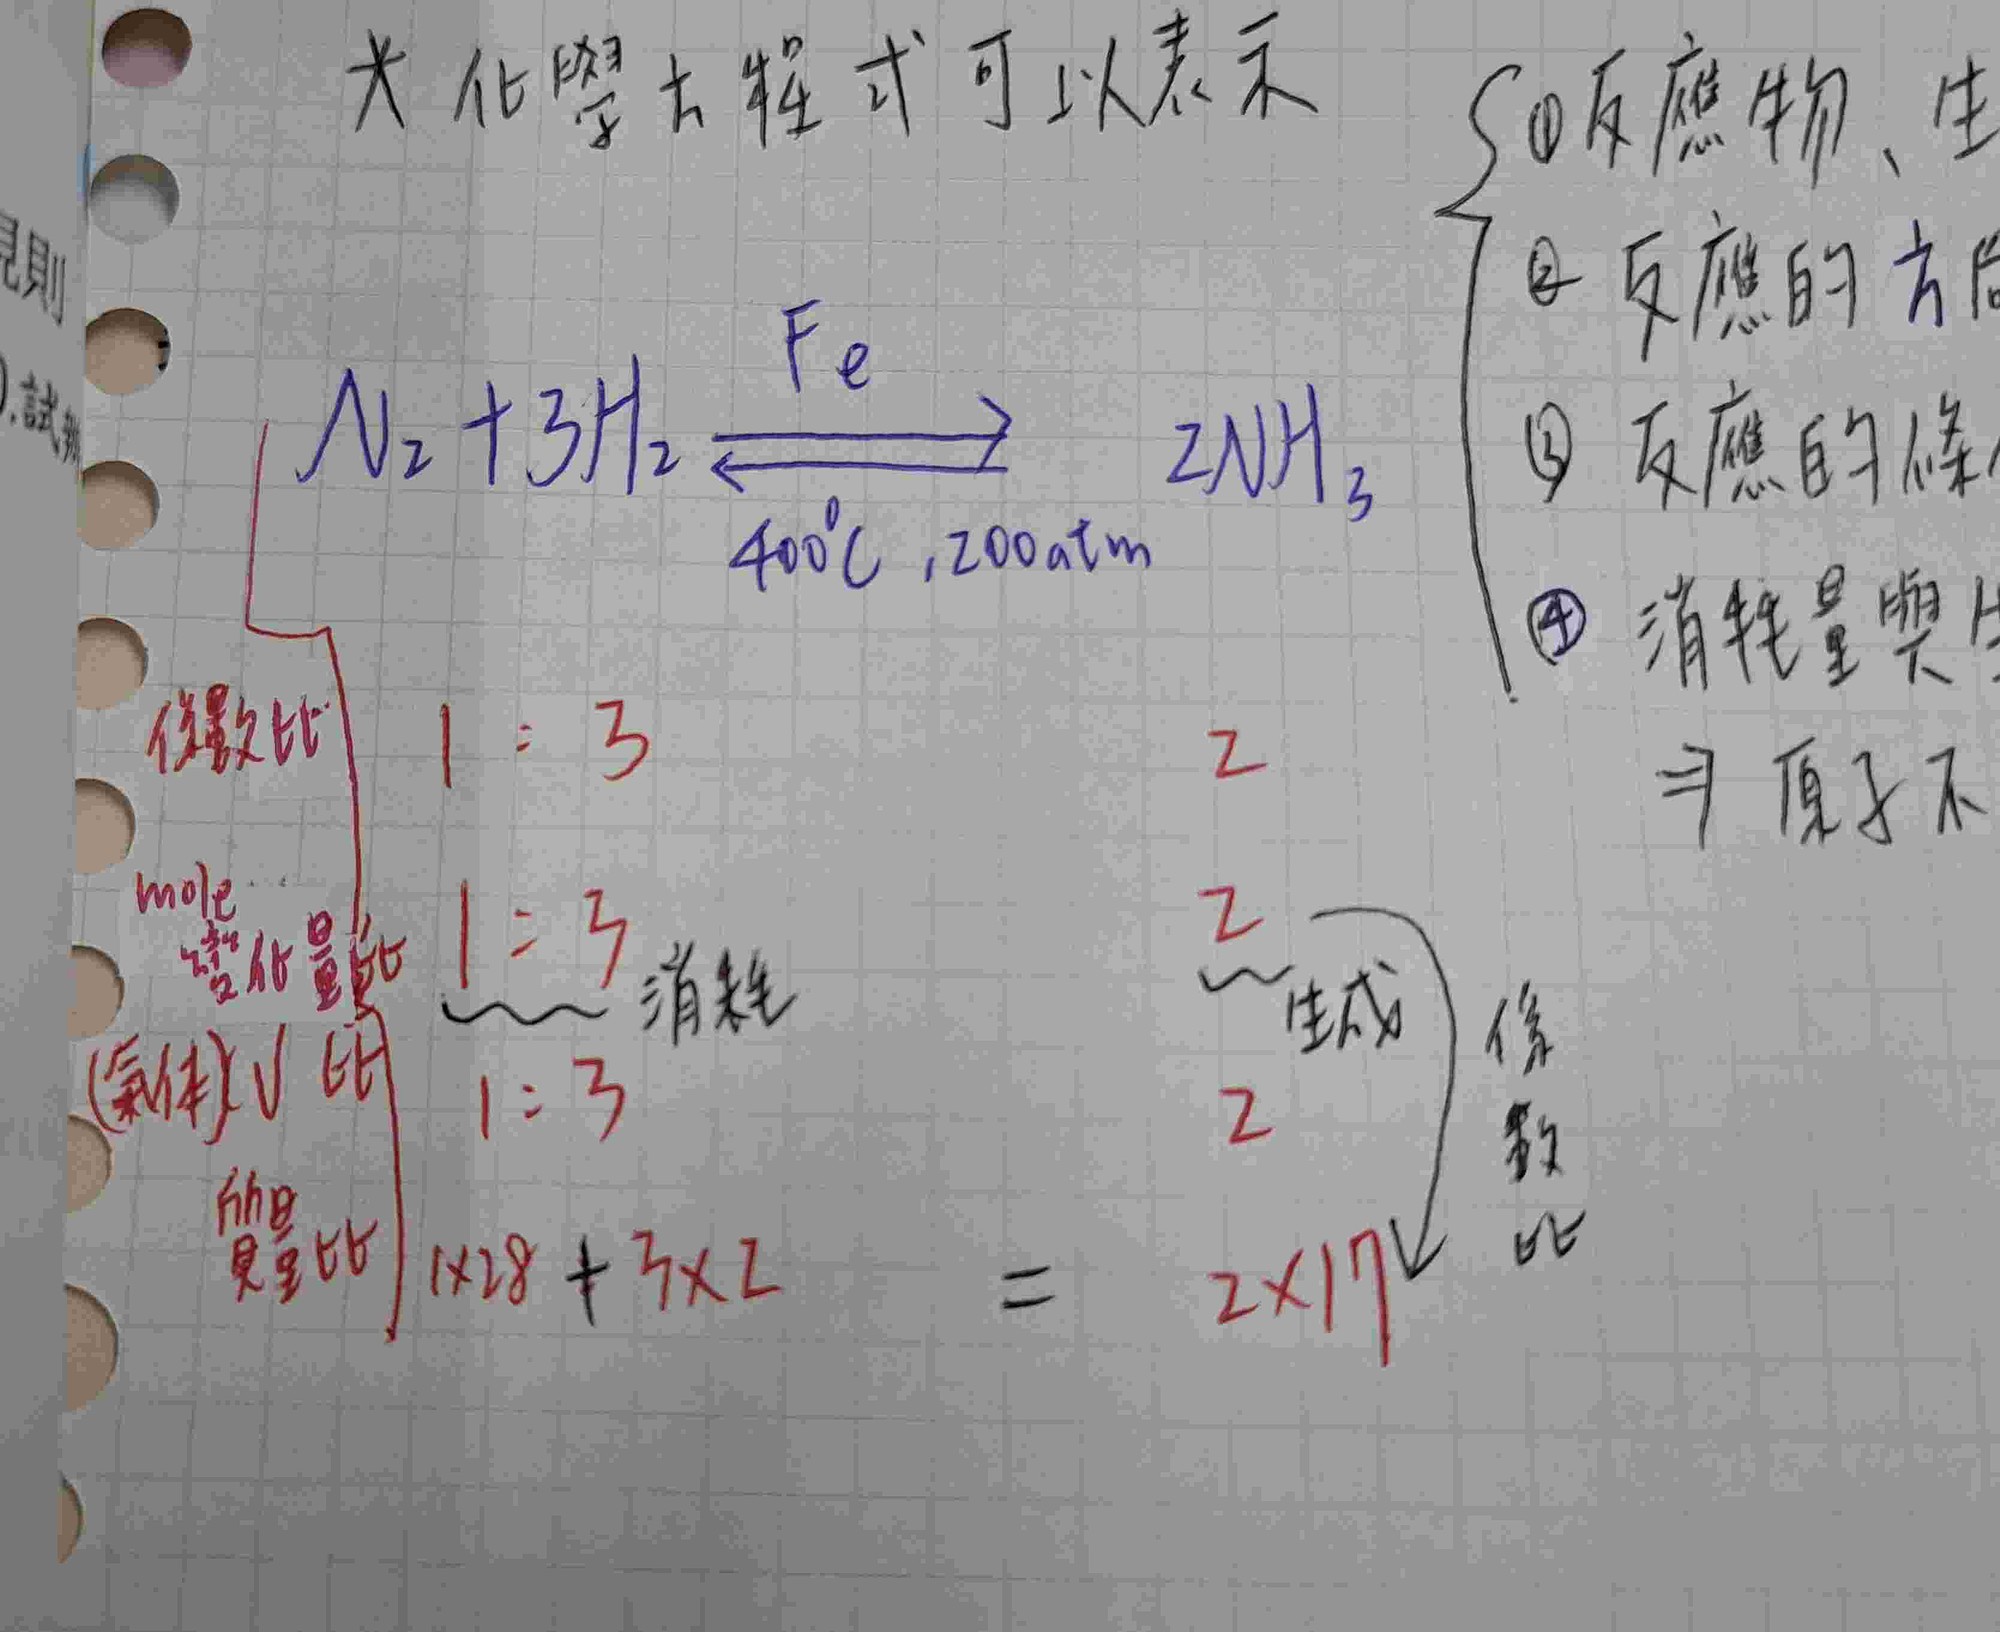 見則
).試辦
* 化學方程式可以表示
①反應物、生
②反應的方向
③反應的條
④消耗量與生
⇒原子不
N₂+3H₂ ⇌ 2NH₃
Fe
400°C,200atm
係數比 1:3 2
mole
變化量比 1:3 2
消耗 生成
(氣体)V比 1:3 2
質量比 1×28+3×2 = 2×17
係數比